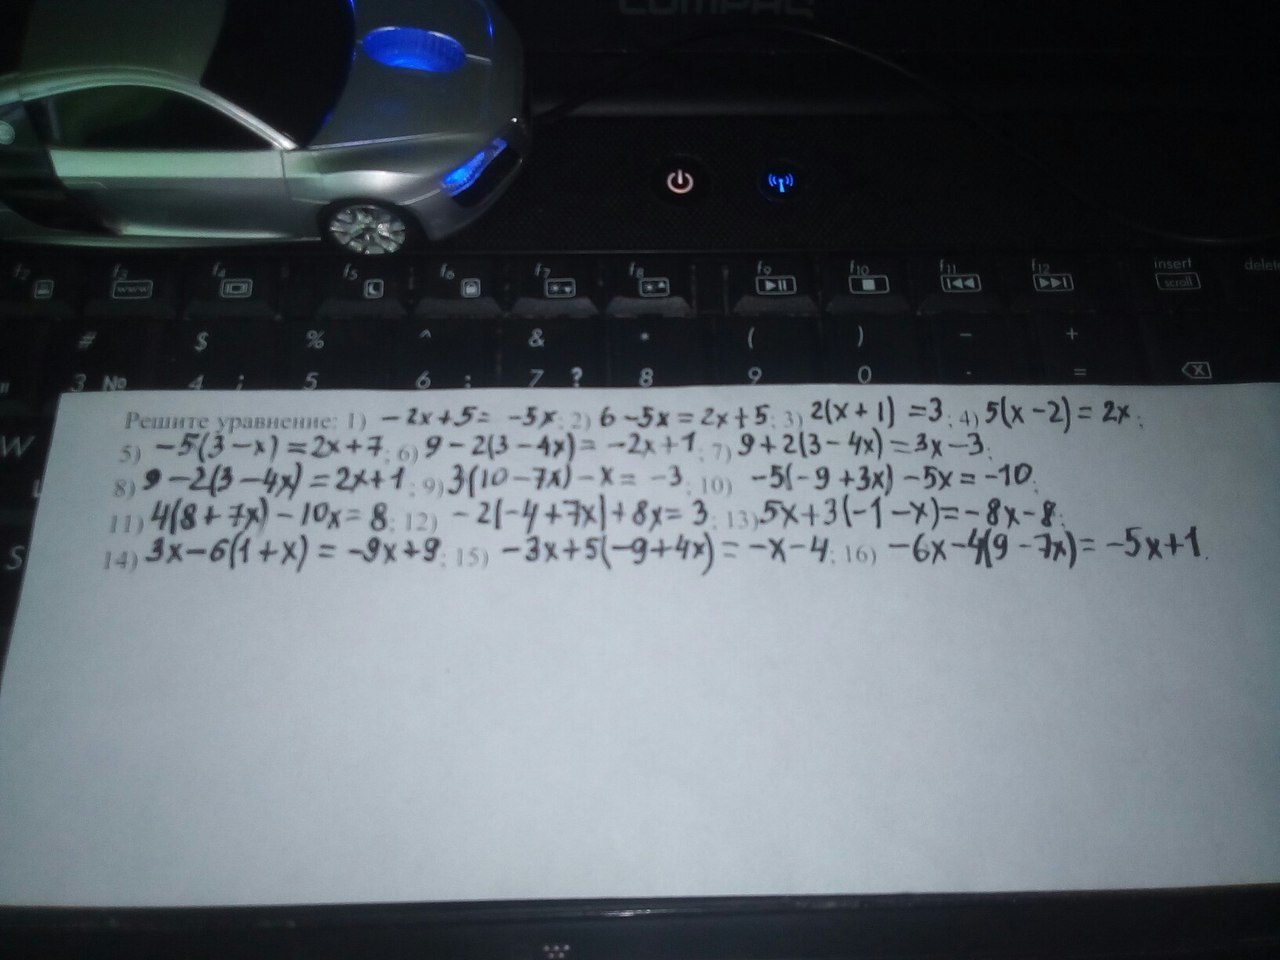 COMPAQ
f2 f3 www f4 f5 f6 f7 f8 f9 f10 f11 f12 insert scroll
# $ % ^ & * ( ) - +
3 № 4 ; 5 6 : 7 ? 8 9 0 =
W
S
Решите уравнение: 1) -2x+5= -5x; 2) 6-5x=2x+5; 3) 2(x+1)=3; 4) 5(x-2)=2x;
5) -5(3-x)=2x+7; 6) 9-2(3-4x)= -2x+1; 7) 9+2(3-4x)=3x-3;
8) 9-2(3-4x)=2x+1; 9) 3(10-7x)-x= -3; 10) -5(-9+3x)-5x=-10;
11) 4(8+7x)-10x=8; 12) -2(-4+7x)+8x=3; 13) 5x+3(-1-x)=-8x-8;
14) 3x-6(1+x)= -9x+9; 15) -3x+5(-9+4x)= -x-4; 16) -6x-4(9-7x)= -5x+1.